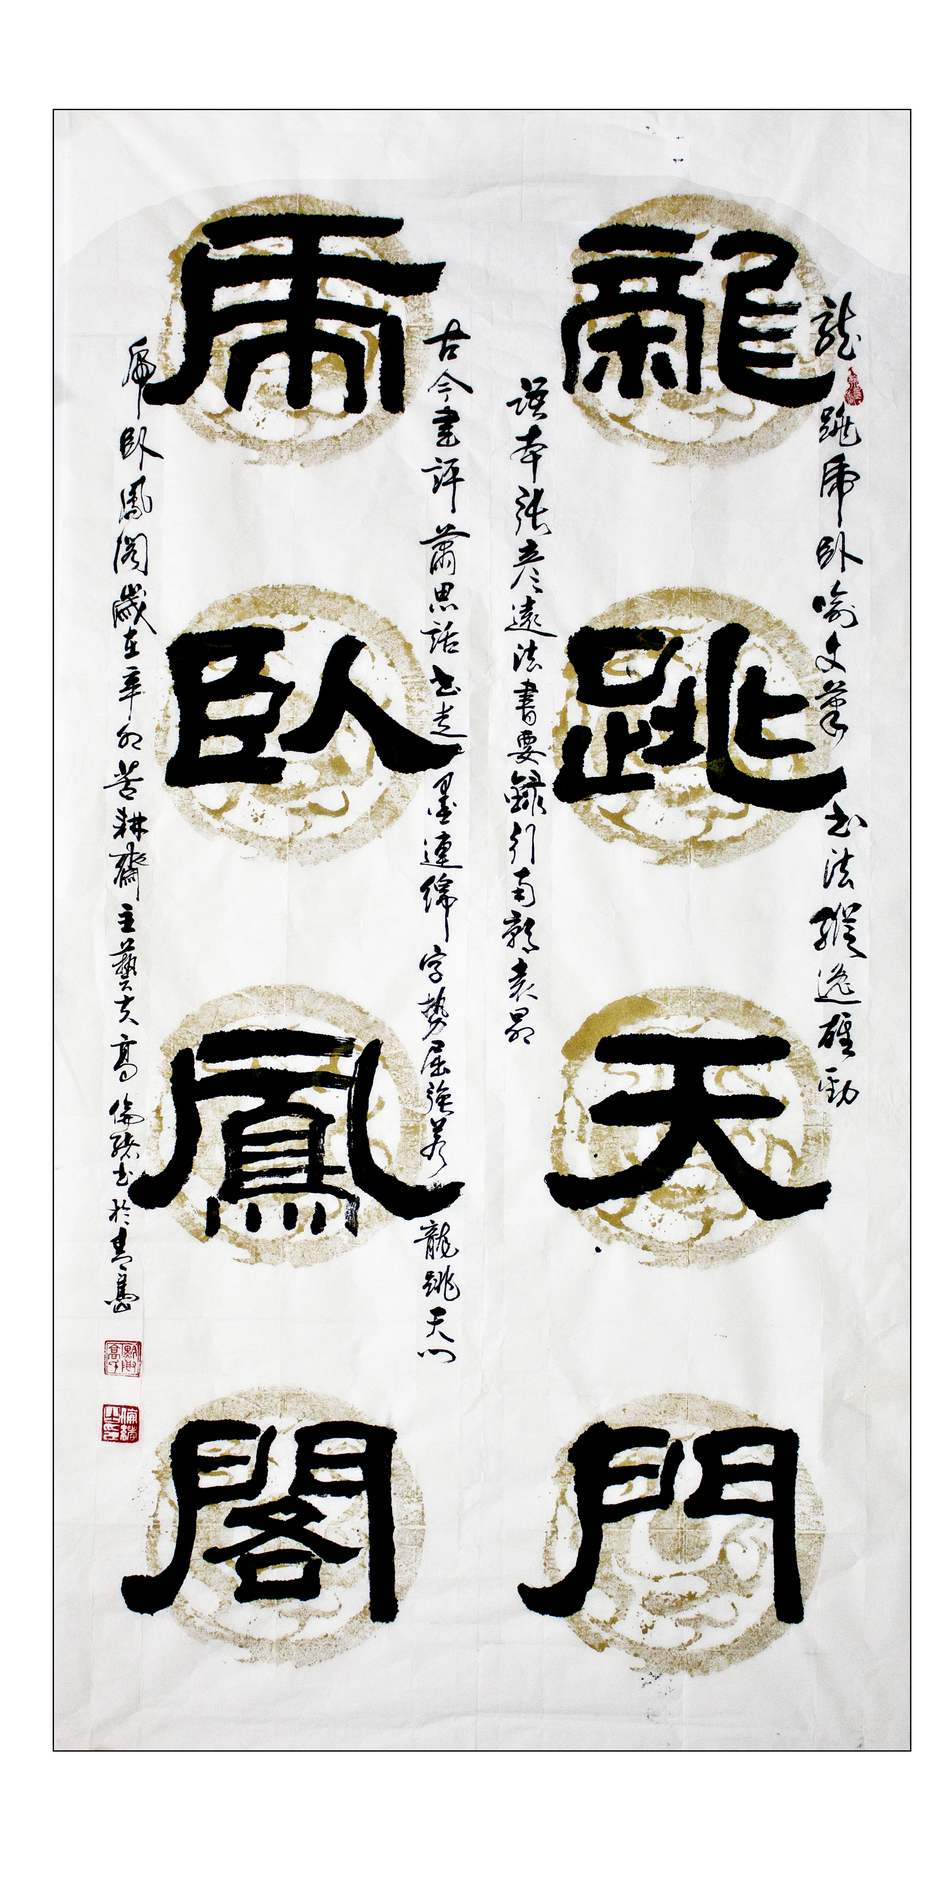 龍跳天門
虎臥鳳閣
龍跳虎臥喻文筆書法縱逸雄勁
語本張彥遠法書要錄引南朝袁昂
古今書評蕭思話書走墨連綿字勢屈強若龍跳天門
虎臥鳳閣歲在辛卯苦耕齋主藝夫高倫緒書於青島